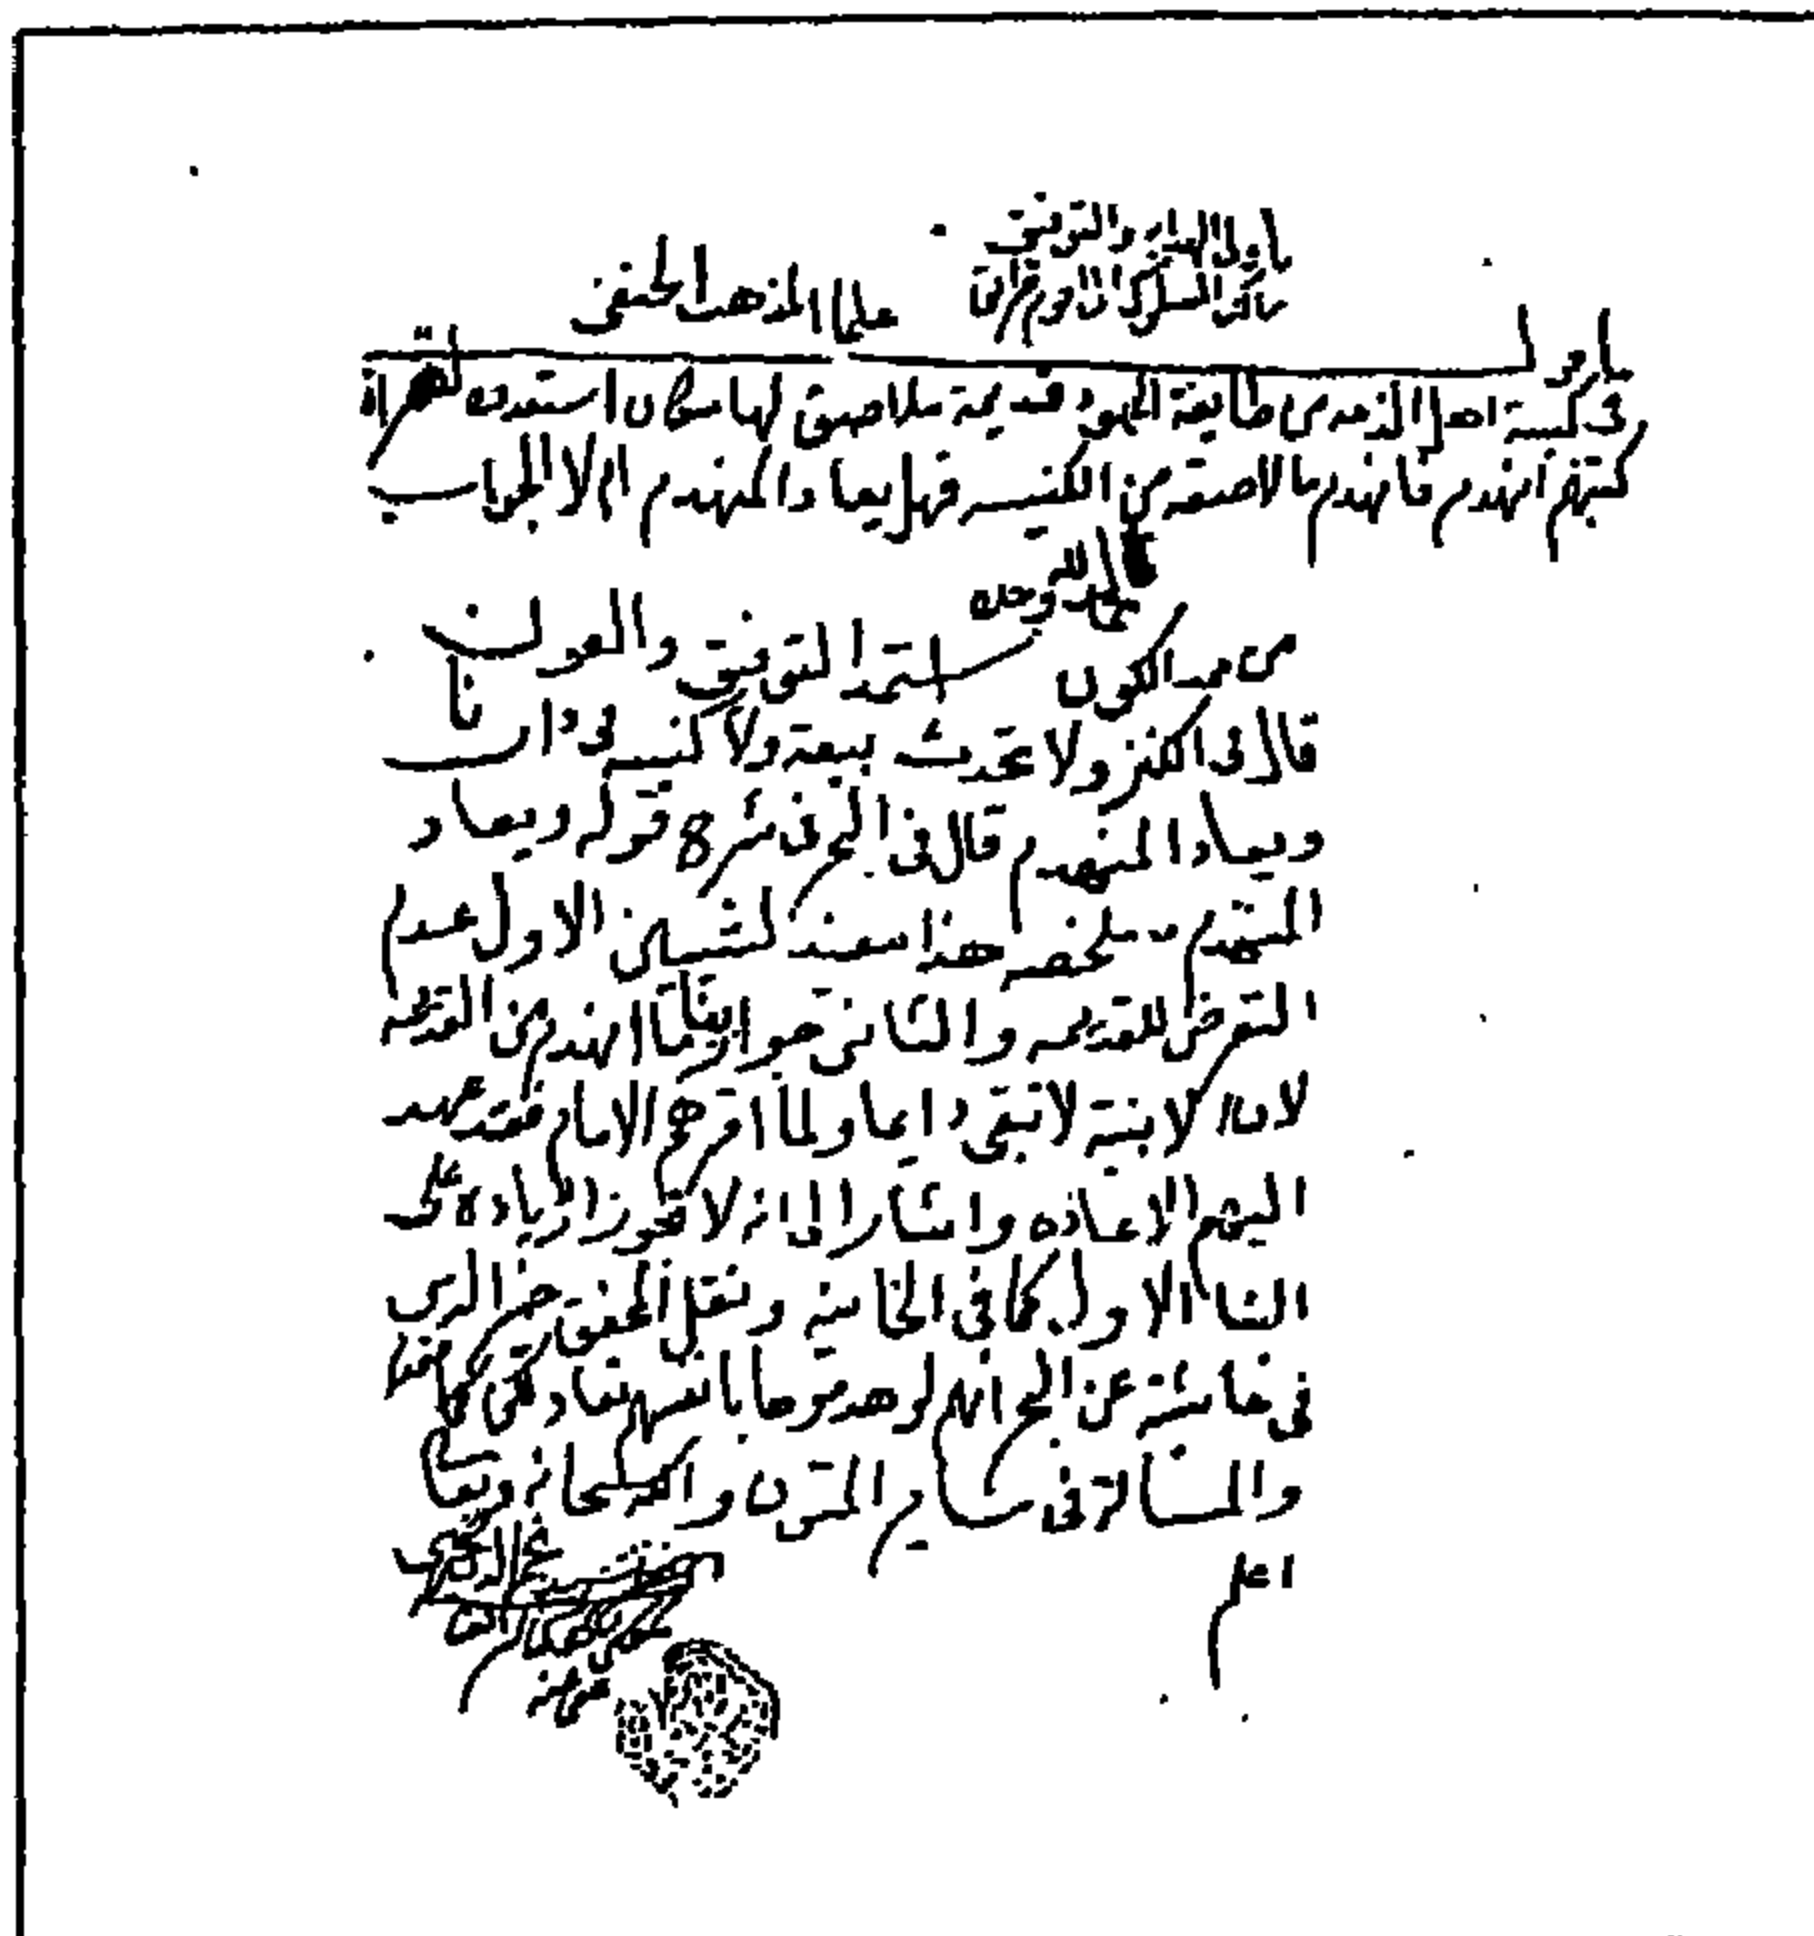 يا ولي الهداية والتوفيق
علما المذهب الحنفي
ما قولكم
في كنيسة اهل الذمه من طايفة اليهود قديمة ملاصق لها مكان استمده لقراة
كتبهم انهدم فانهدم ما لاصقه من الكنيسه فهل يعاد المنهدم ام لا الجواب
الحمد لله وحده
من ممد الكون استمد التوفيق والعون
قال في الكنز ولا تحدث بيعة ولا كنيسه في دارنا
ويعاد المنهدم قال في البحر في شرح قوله ويعاد
المنهدم ملخصه هذا مفيد لشيئين الاول عدم
التعرض للقديمه والثاني جواز بنا ما انهدم من القديمه
لان الابنية لا تبقى دايما ولما اقرهم الامام فقد عهد
اليهم الاعاده واشار الى انه لا تجوز الزيادة على
البنا الاول كما في الخانيه ونقل المحقق خير الدين
في حاشيته عن البحر انهم لو هدموها بانفسهم تعاد
والمسالة في ساير المتون والله سبحانه وتعالى
اعلم